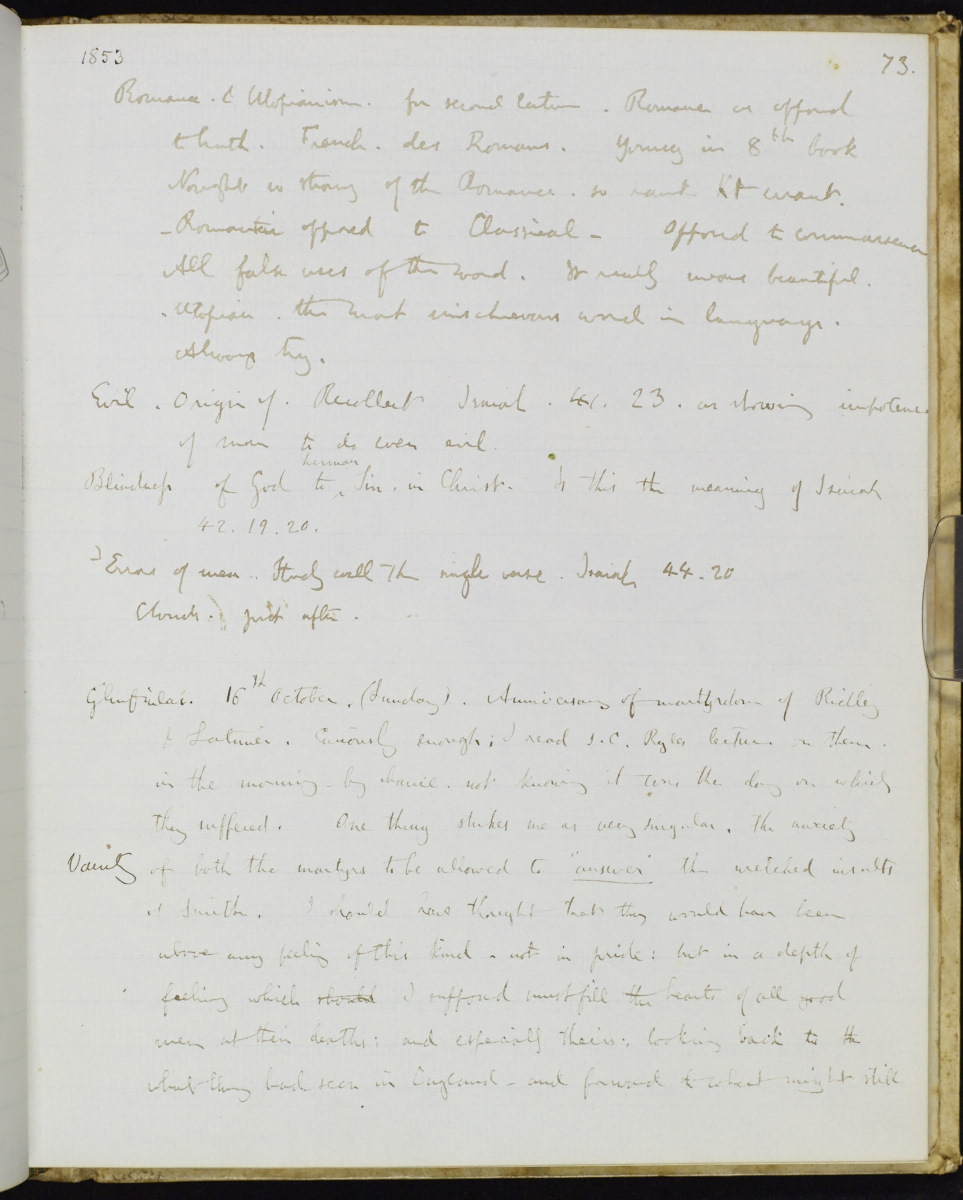 1853 73.
Romance. & Utopianism. for second lecture. Romance as opposed
to truth. French. des Romans. Young in 8th book
Nought so strong of the Romance. so rank Kt errant.
- Romantic opposed to Classical - Opposed to commonsense
All false uses of the word. It really means beautiful.
Utopian. the most mischievous word in language.
Always try.
Evil. Origin of. Recollect Isaiah. 41. 23. as showing impotence
of man to do even evil.
Blindness of God to human Sin. in Christ. Is this the meaning of Isaiah
42. 19. 20.
Errors of men.. Study well the single verse. Isaiah 44. 20
Clouds. just after.
Glenfinlas. 16th October. (Sunday). Anniversary of martyrdom of Ridley
& Latimer. Curiously enough; I read J.C. Ryles lecture on them.
in the morning - by chance. not knowing it was the day on which
they suffered. One thing strikes me as very singular. the anxiety
Vanity of both the martyrs to be allowed to "answer" the wretched insults
of Smith. I should have thought that they would have been
above any feeling of this kind. not in pride: but in a depth of
feeling which should I supposed must fill the hearts of all good
men at their deaths: and especially theirs: looking back to the
what they had seen in England - and forward to what might still